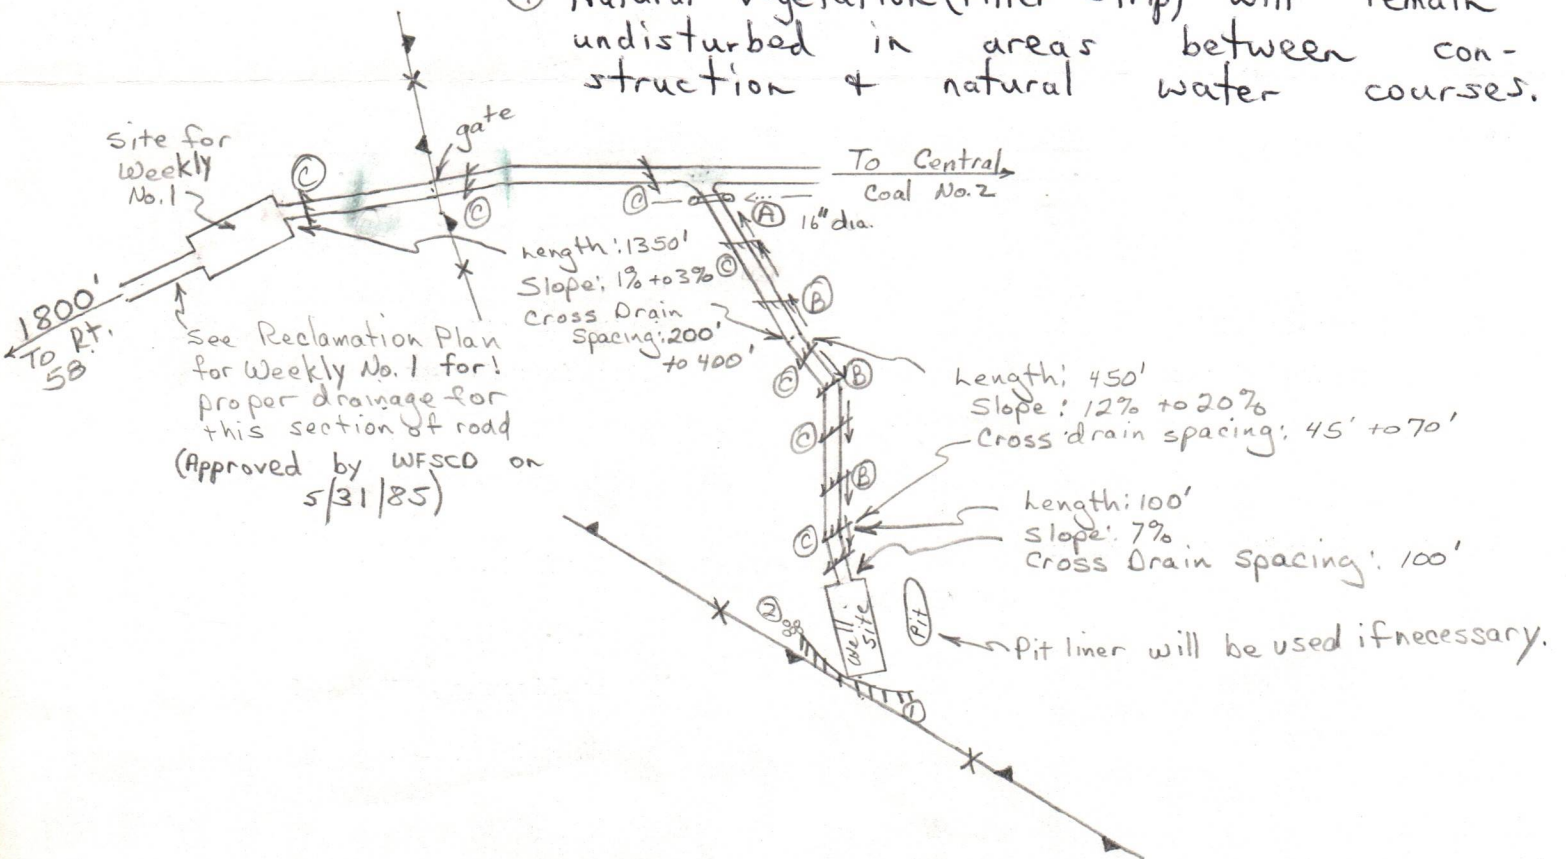 ④ Natural vegetation (filter strip) will remain
undisturbed in areas between con-
struction & natural water courses.
gate
Site for
Weekly
No. 1
C
C
C
To Central
Coal No. 2
A
16" dia.
Length: 1350'
Slope: 1% to 3%
Cross Drain
Spacing: 200'
to 400'
C
B
1800'
To Rt.
58
See Reclamation Plan
for Weekly No. 1 for!
proper drainage for
this section of road
(Approved by WFSCD on
5/31/85)
C
B
Length: 450'
Slope: 12% to 20%
Cross drain spacing: 45' to 70'
C
B
C
Length: 100'
Slope: 7%
Cross Drain Spacing: 100'
②
Well
Site
Pit
Pit liner will be used if necessary.
①